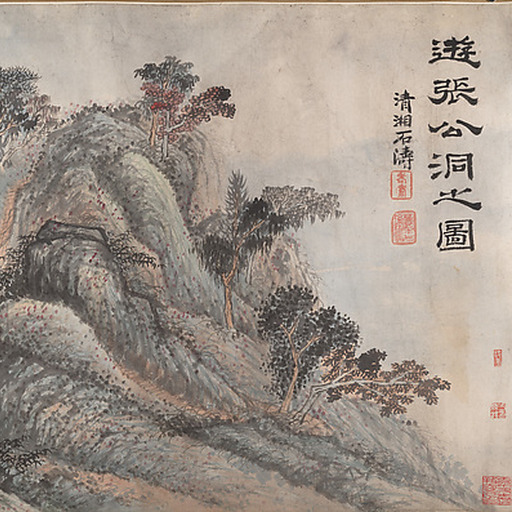 遊張公洞之圖
清湘石濤